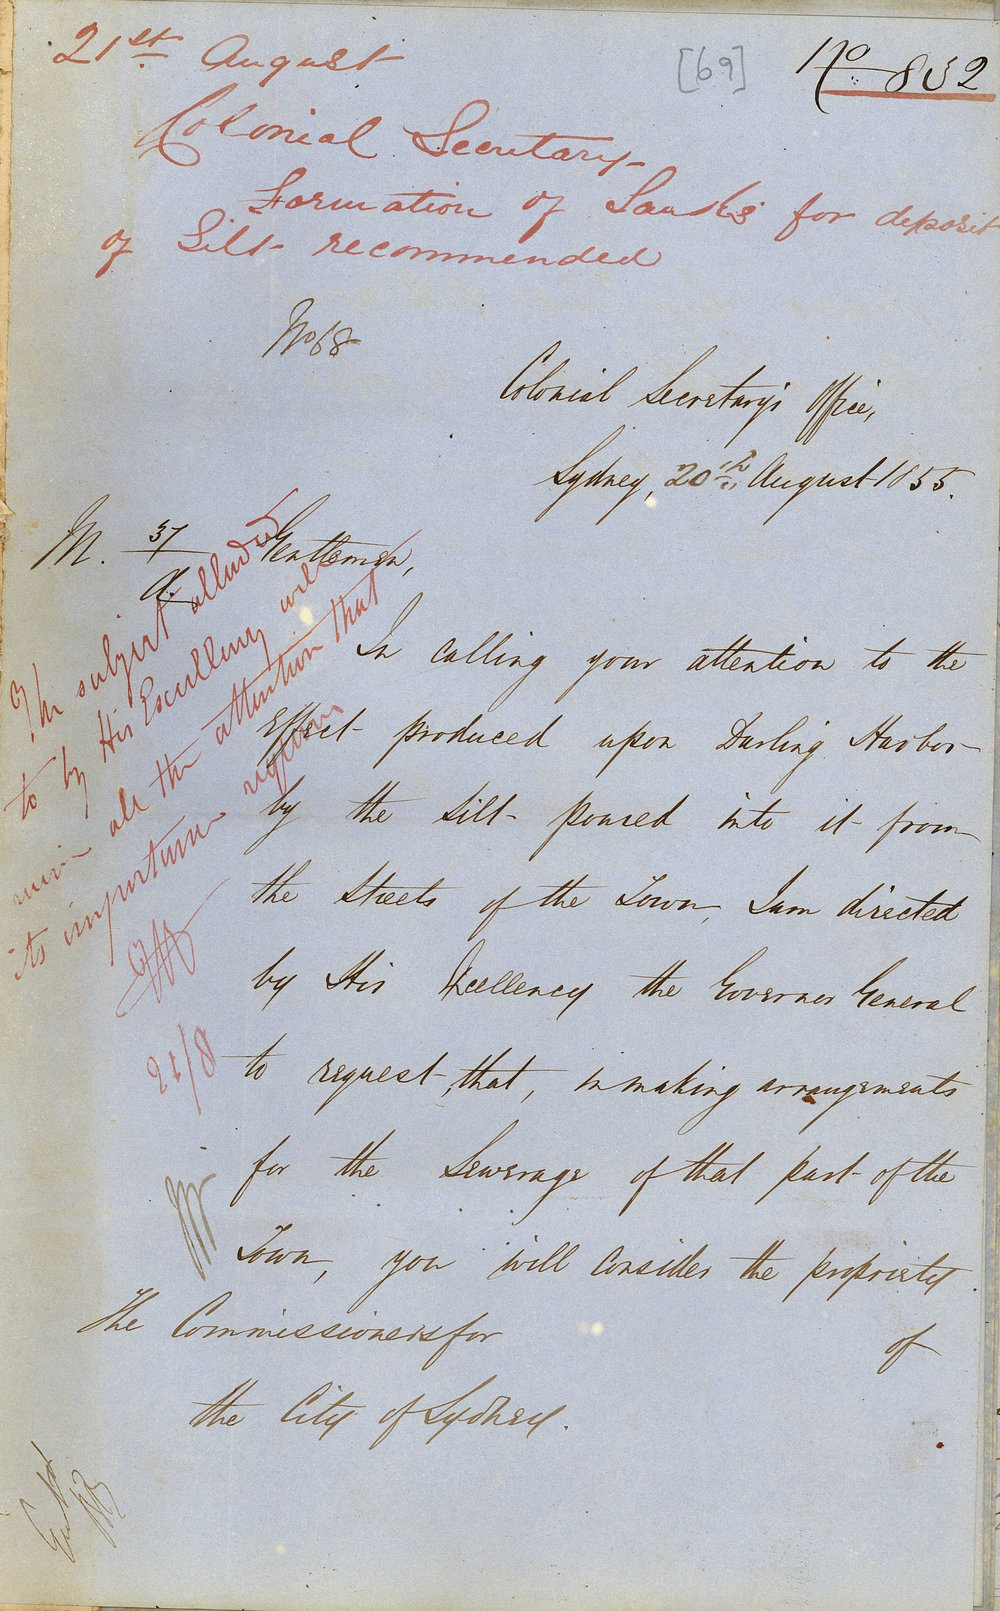 21st August
[69]
No 832
Colonial Secretary
Formation of Tanks for deposit
of Silt recommended
No 68
Colonial Secretary's Office,
Sydney, 20th August 1855.
M. 37
Gentlemen,
In calling your attention to the
Effect produced upon Darling Harbor
by the silt poured into it from
the Streets of the Town, I am directed
by His Excellency the Governor General
to request, that, in making arrangements
for the Sewerage of that part of the
Town, you will consider the propriety
of
The Commissioners for
the City of Sydney.
The subject alluded
to by His Excellency will
receive all the attention that
its importance requires
21/8